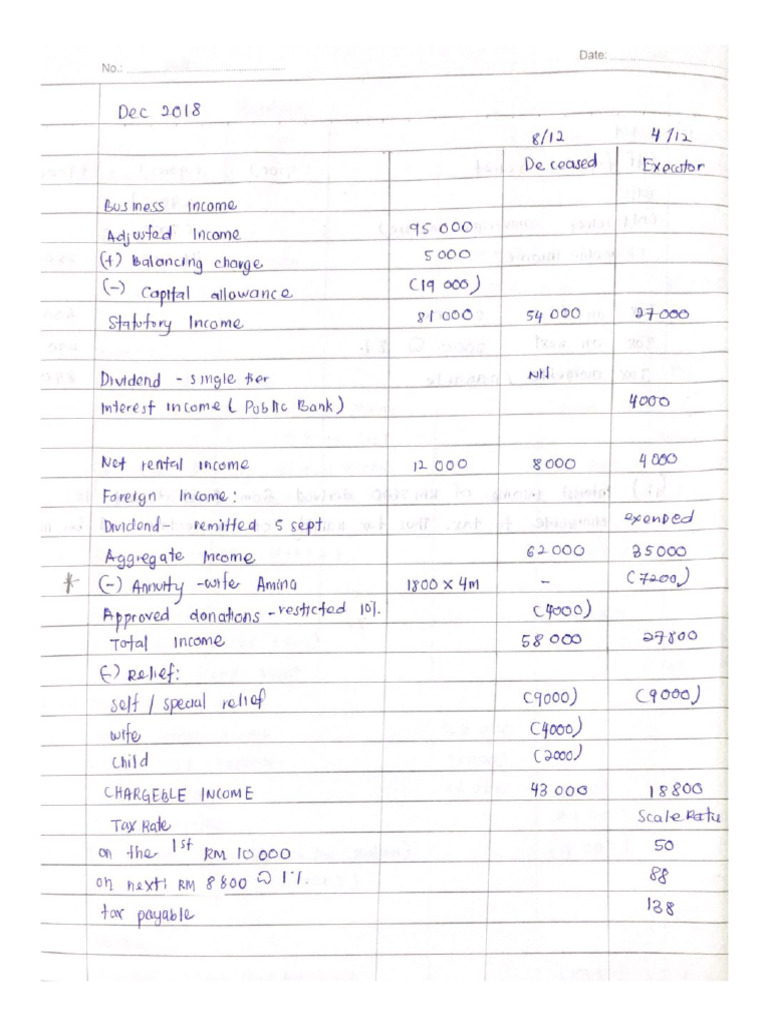 No.:
Date:
Dec 2018
8/12 4/12
Deceased Executor
Business income
Adjusted Income 95 000
(+) Balancing charge 5000
(-) Capital allowance (19 000)
Statutory Income 81 000 54 000 27000
Dividend - single tier Nil
Interest income ( Public Bank) 4000
Net rental income 12 000 8000 4000
Foreign Income:
Dividend- remitted 5 sept exempted
Aggregate Income 62 000 35000
* (-) Annuity -wife Amina 1800 x 4m - (7200)
Approved donations - restricted 10%. (4000)
Total income 58 000 27800
(-) Relief:
Self / special relief (9000) (9000)
wife (4000)
child (2000)
CHARGEBLE INCOME 43 000 18 800
Tax Rate Scale Rate
on the 1st RM 10 000 50
on next: RM 8 800 @ 1%. 88
tax payable 138